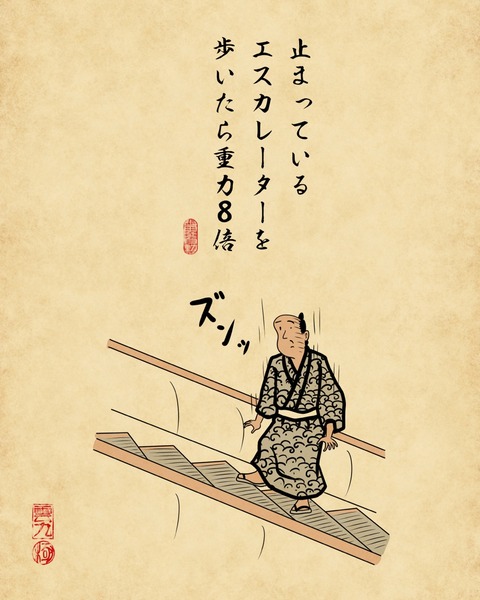 止まっている
エスカレーターを
歩いたら重力8倍
ズンッ